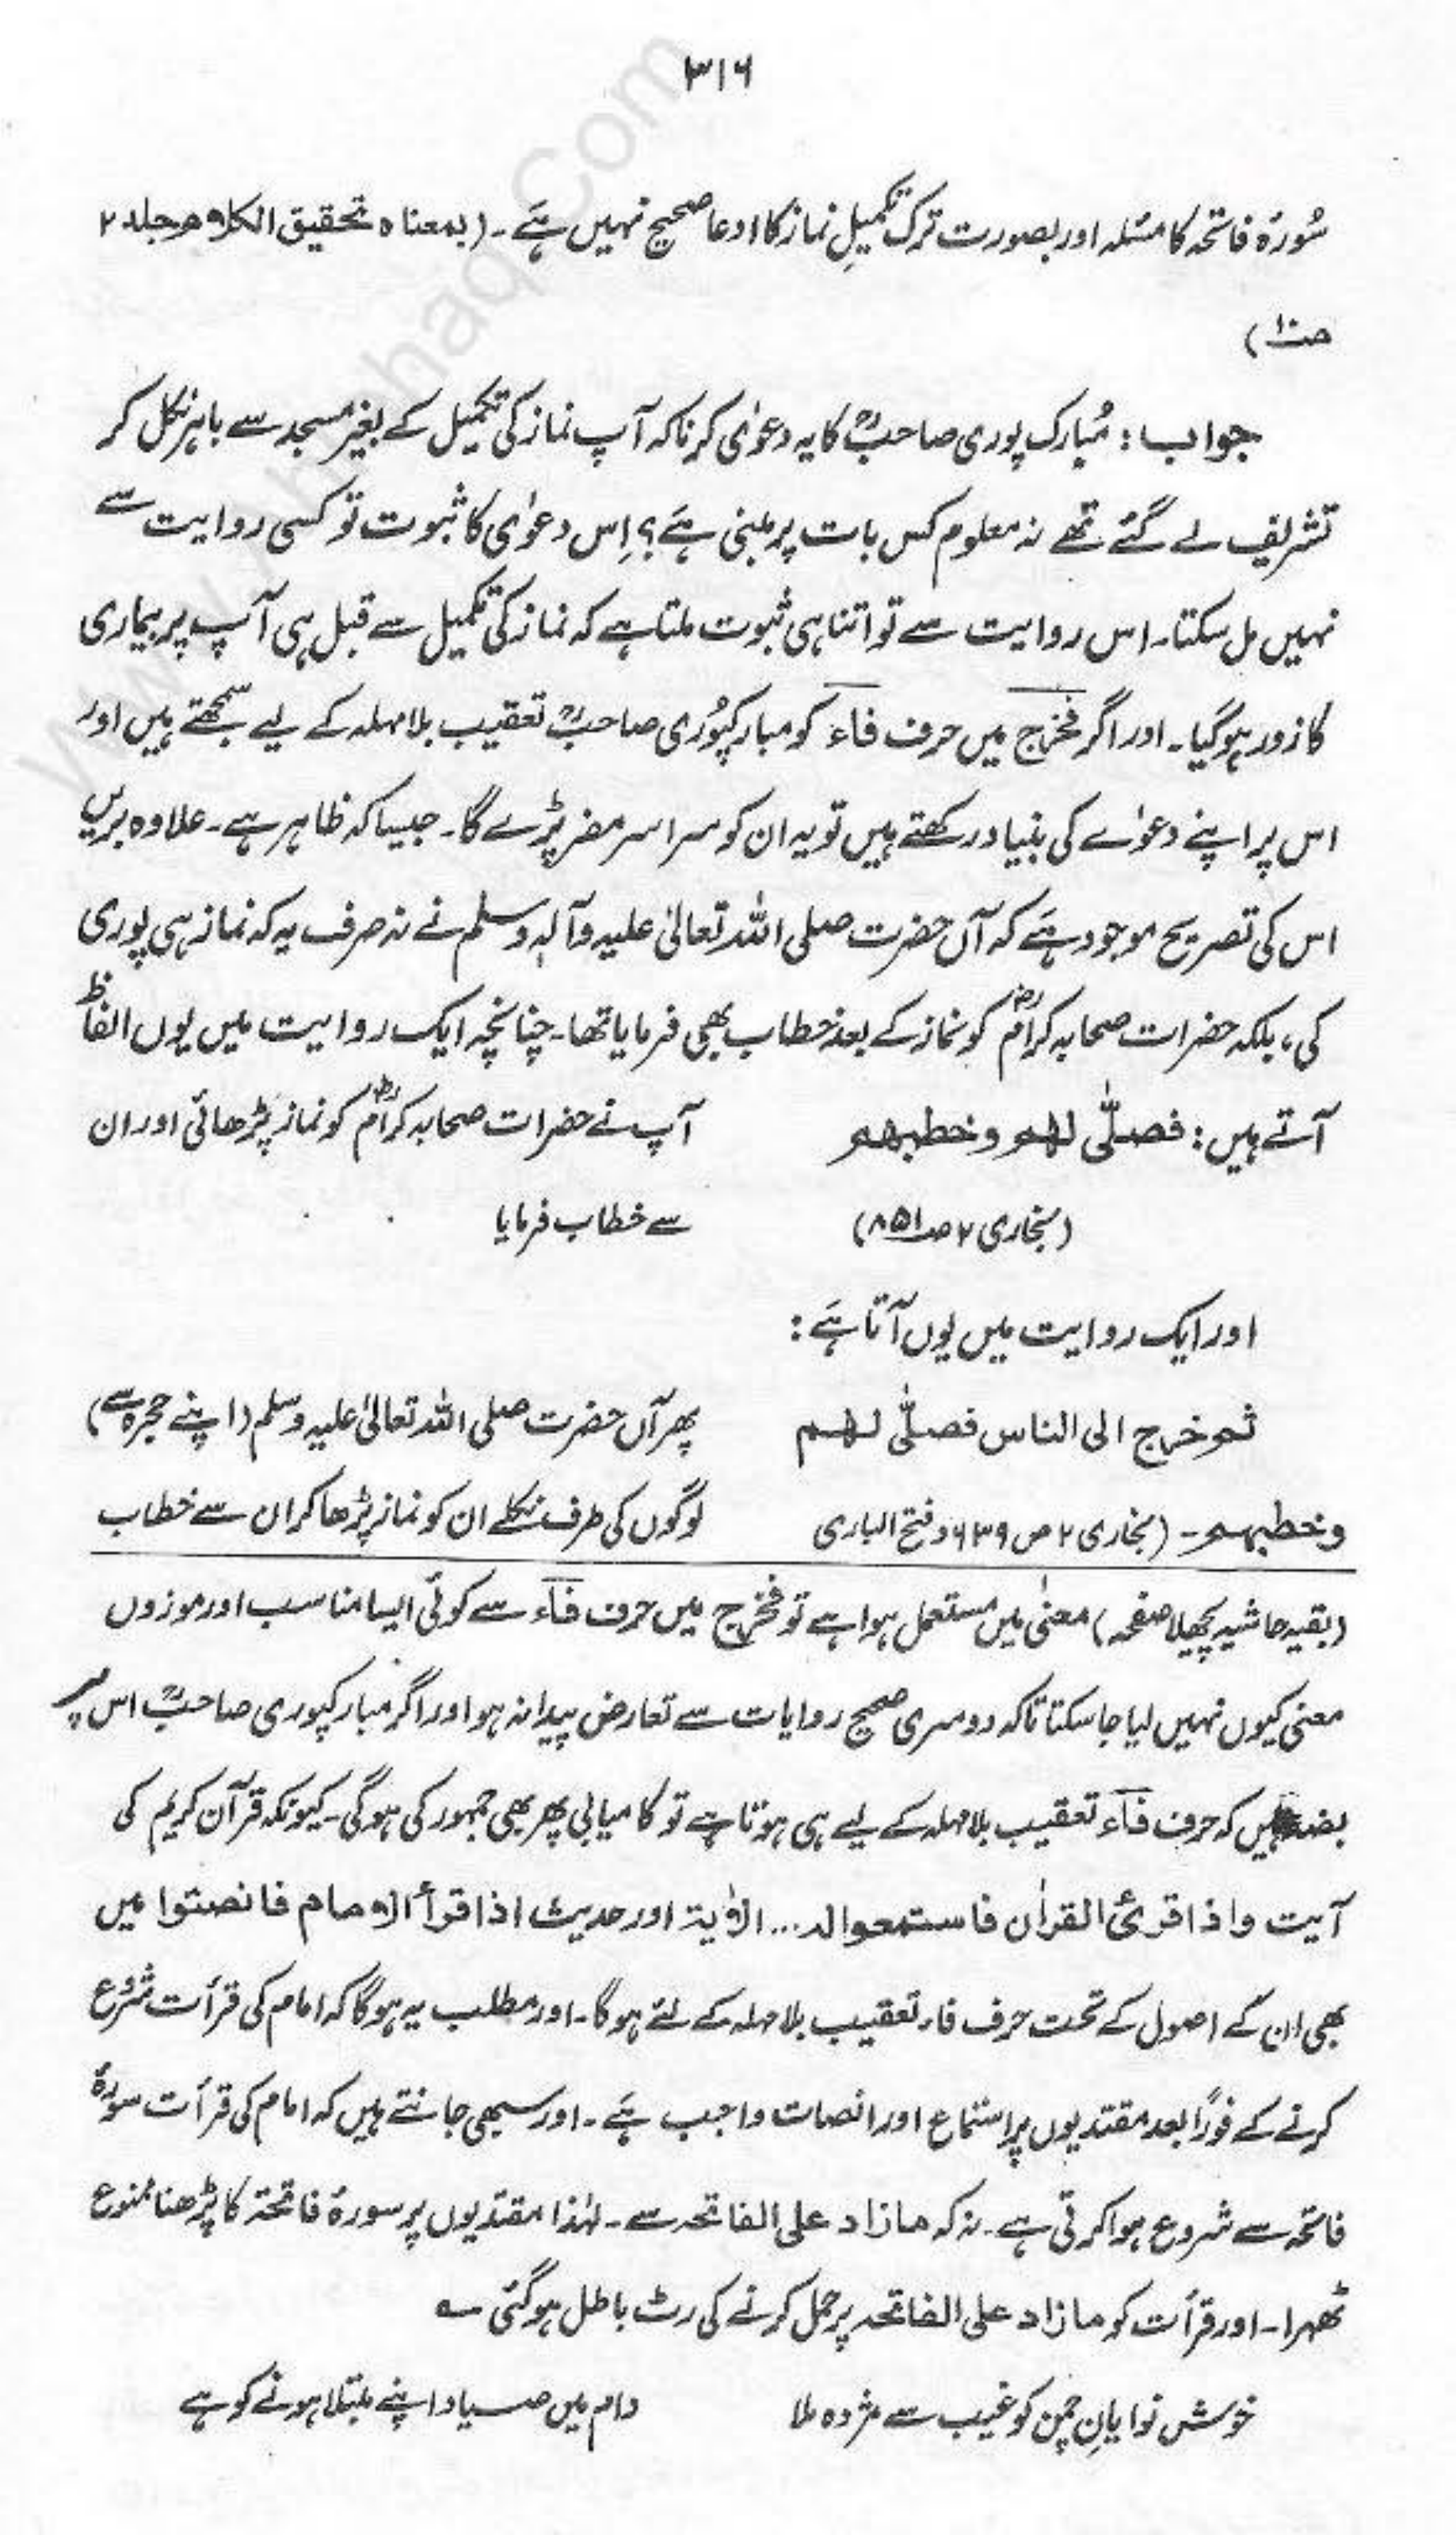 ۳۱۶
سُورۃ فاتحہ کا مسئلہ اور بصورت ترک تکمیلِ نماز کا ادعا صحیح نہیں ہَے ۔ (بمعناہ تحقیق الکلام جلد ۲
صـ۱۰)
جواب : مُبارک پوری صاحبؒ کا یہ دعوٰی کرنا کہ آپ نماز کی تکمیل کے بغیر مسجد سے باہر نکل کر
تشریف لے گئے تھے نہ معلوم کس بات پر مبنی ہَے؟ اِس دعوٰی کا ثبوت تو کسی روایت سے
نہیں مل سکتا۔ اس روایت سے تو اتنا ہی ثبوت ملتا ہے کہ نماز کی تکمیل سے قبل ہی آپ پر بیماری
کا زور ہو گیا۔ اور اگر فخرج میں حرف فاء کو مبارکپُوری صاحبؒ تعقیب بلا مہلہ کے لیے سمجھتے ہیں اور
اس پر اپنے دعوٰے کی بنیاد رکھتے ہیں تو یہ ان کو سراسر مضر پڑے گا۔ جیسا کہ ظاہر ہے۔ علاوہ بریں
اس کی تصریح موجود ہَے کہ آں حضرت صلی اللہ تعالیٰ علیہ وآلہٖ وسلم نے نہ صرف یہ کہ نماز ہی پوری
کی، بلکہ حضرات صحابہ کرامؓ کو نماز کے بعد خطاب بھی فرمایا تھا۔ چنانچہ ایک روایت میں یوں الفاظ
آتے ہیں : فصلّٰی لھم وخطبھم آپ نے حضرات صحابہ کرامؓ کو نماز پڑھائی اور ان
(بخاری ۲ صـ۸۵۱) سے خطاب فرمایا
اور ایک روایت میں یوں آتا ہَے :
ثم خرج الی الناس فصلّٰی لھم پھر آں حضرت صلی اللہ تعالیٰ علیہ وسلم (اپنے حجرہ سے)
وخطبھم ۔ (بخاری ۲ ص ۶۳۹ و فتح الباری لوگوں کی طرف نکلے ان کو نماز پڑھا کر ان سے خطاب
(بقیہ حاشیہ پچھلا صفحہ) معنیٰ میں مستعمل ہوا ہے تو فخرج میں حرف فاء سے کوئی ایسا مناسب اور موزوں
معنی کیوں نہیں لیا جا سکتا تاکہ دوسری صحیح روایات سے تعارض پیدا نہ ہو اور اگر مبارکپوری صاحبؒ اس پر
بضد ہیں کہ حرف فاء تعقیب بلا مہلہ کے لیے ہی ہوتا ہے تو کامیابی پھر بھی جمہور کی ہو گی۔ کیونکہ قرآن کریم کی
آیت واذا قرئ القراٰن فاستمعوا لہ ... الاٰیۃ اور حدیث اذا قرأ الامام فانصتوا میں
بھی ان کے اصول کے تحت حرف فاء تعقیب بلا مہلہ کے لئے ہو گا۔ اور مطلب یہ ہو گا کہ امام کی قرأت شروع
کرنے کے فورًا بعد مقتدیوں پر استماع اور انصات واجب ہَے ۔ اور سبھی جانتے ہیں کہ امام کی قرأت سورۃ
فاتحہ سے شروع ہوا کرتی ہے۔ نہ کہ مازاد علی الفاتحہ سے ۔ لہٰذا مقتدیوں پر سورۃ فاتحۃ کا پڑھنا ممنوع
ٹھہرا ۔ اور قرأت کو مازاد علی الفاتحہ پر حمل کرنے کی رٹ باطل ہو گئی ؎
خوش نوایانِ چمن کو غیب سے مژدہ ملا دام میں صیاد اپنے مبتلا ہونے کو ہے